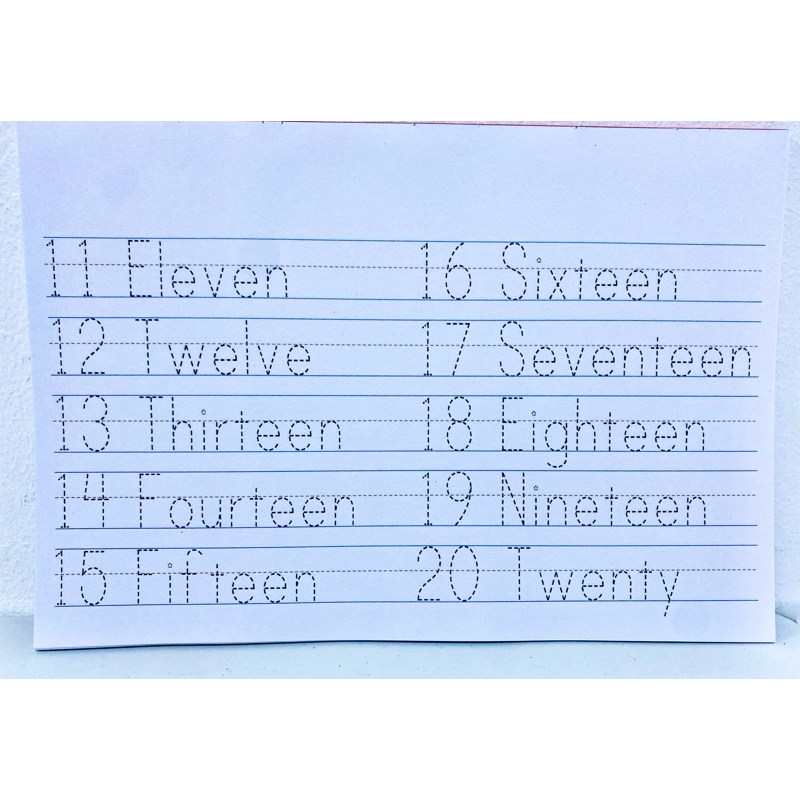 11 Eleven
12 Twelve
13 Thirteen
14 Fourteen
15 Fifteen
16 Sixteen
17 Seventeen
18 Eighteen
19 Nineteen
20 Twenty